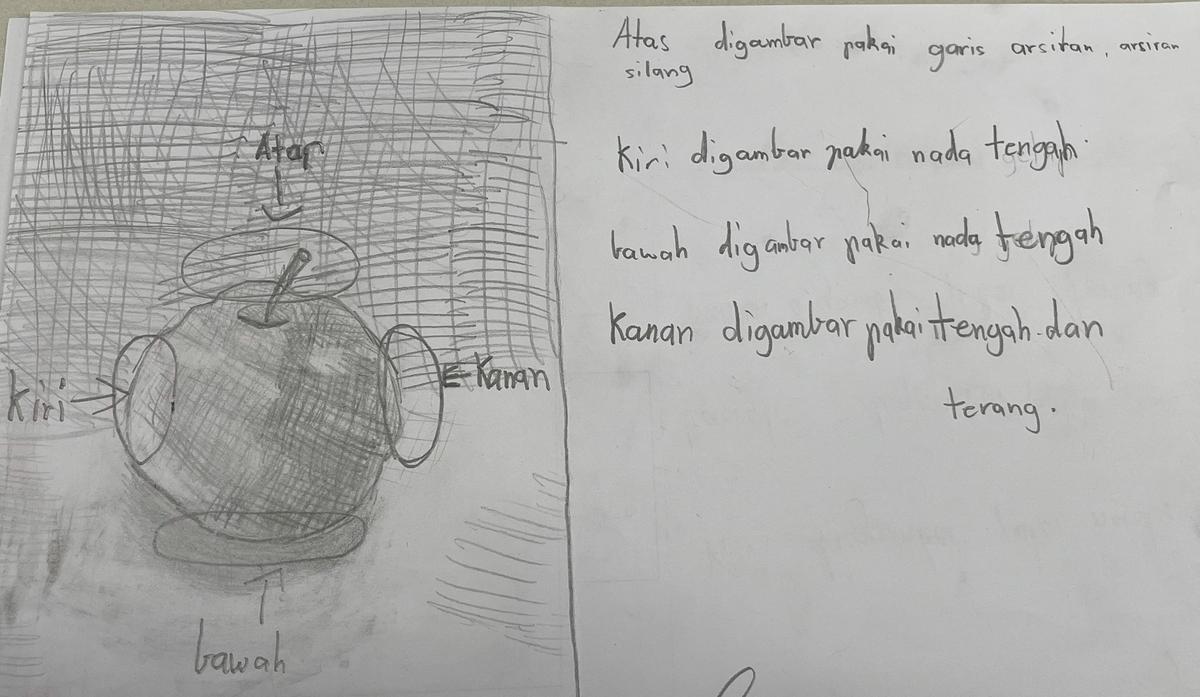 Atas
Kiri
Kanan
bawah
Atas digambar pakai garis arsiran, arsiran
silang
Kiri digambar pakai nada tengah.
bawah digambar pakai nada tengah
Kanan digambar pakai tengah-dan
terang.